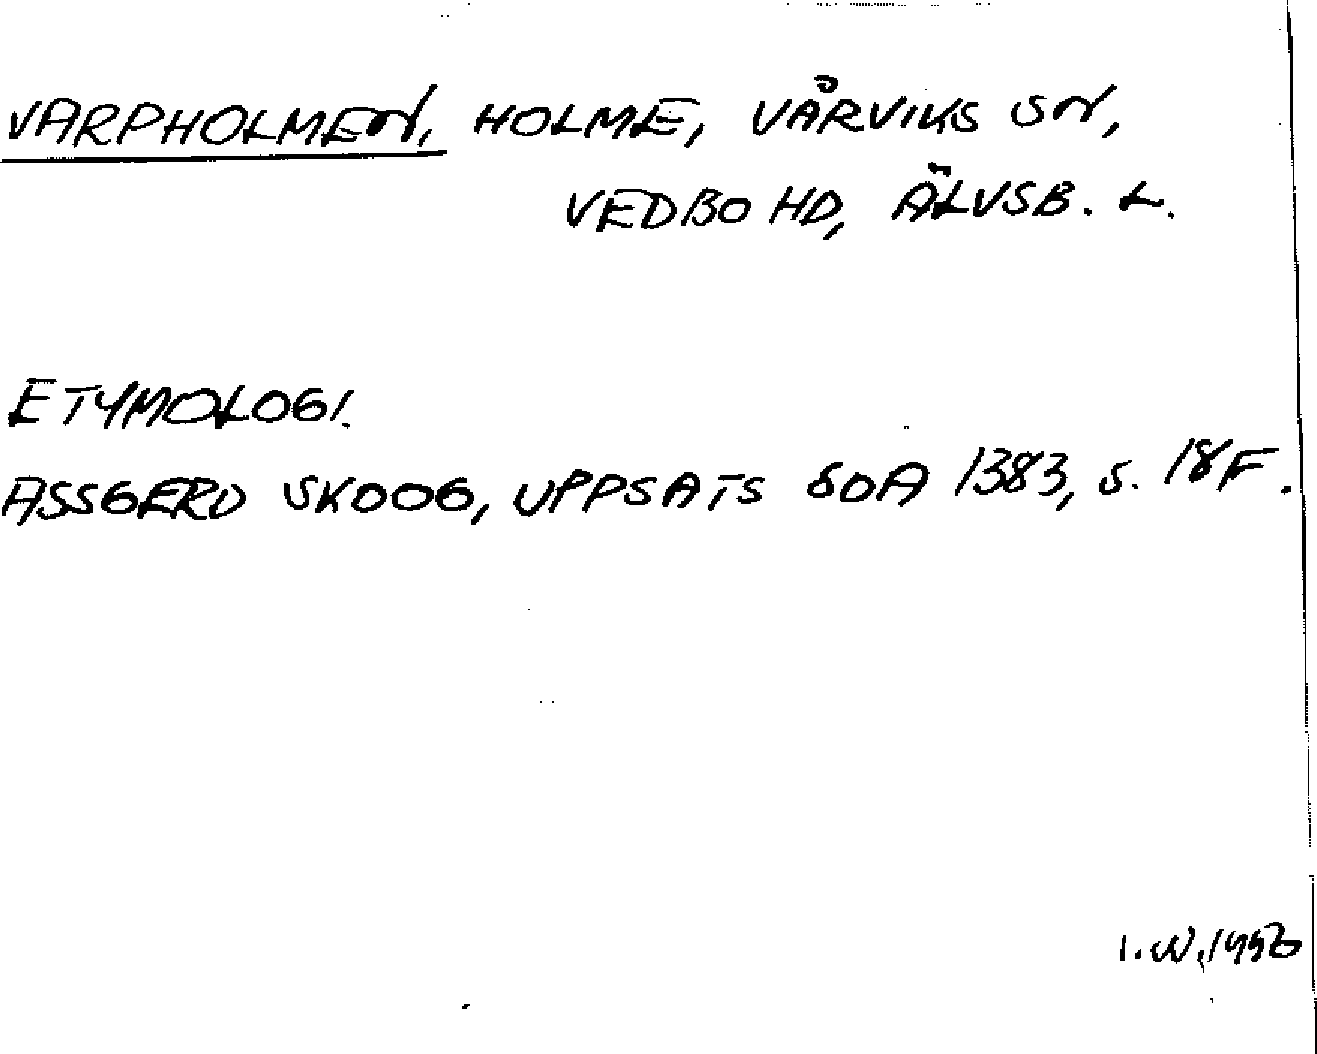 VARPHOLMEN, HOLME, VÅRVIKS SN,
VEDBO HD, ÄLVSB. L.
ETYMOLOGI.
ASSGERD SKOOG, UPPSATS SOA 1383, S. 18F.
I.W.